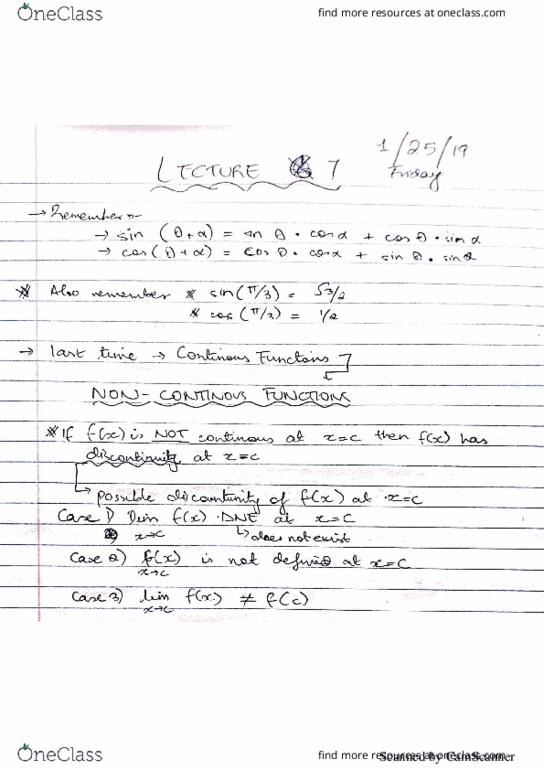 OneClass
find more resources at oneclass.com
LECTURE 7
1/25/19
Friday
→ Remember :-
→ sin (θ+α) = sin θ · cosα + cosθ · sinα
→ cos(θ+α) = cos θ · cosα + sinθ · sinα
* Also remember * sin(π/3) = √3/2
* cos (π/3) = 1/2
→ last time → Continous Functions
NON-CONTINOUS FUNCTIONS
* If f(x) is NOT continous at x=c then f(x) has
discontinuity at x=c
↳ possible discountunity of f(x) at x=c
Case 1) lim f(x) DNE at x=c
x→c ↳ does not exist
Case 2) f(x) is not defined at x=c
x→c
Case 3) lim f(x) ≠ f(c)
x→c
OneClass
find more resources at oneclass.com
Scanned by CamScanner